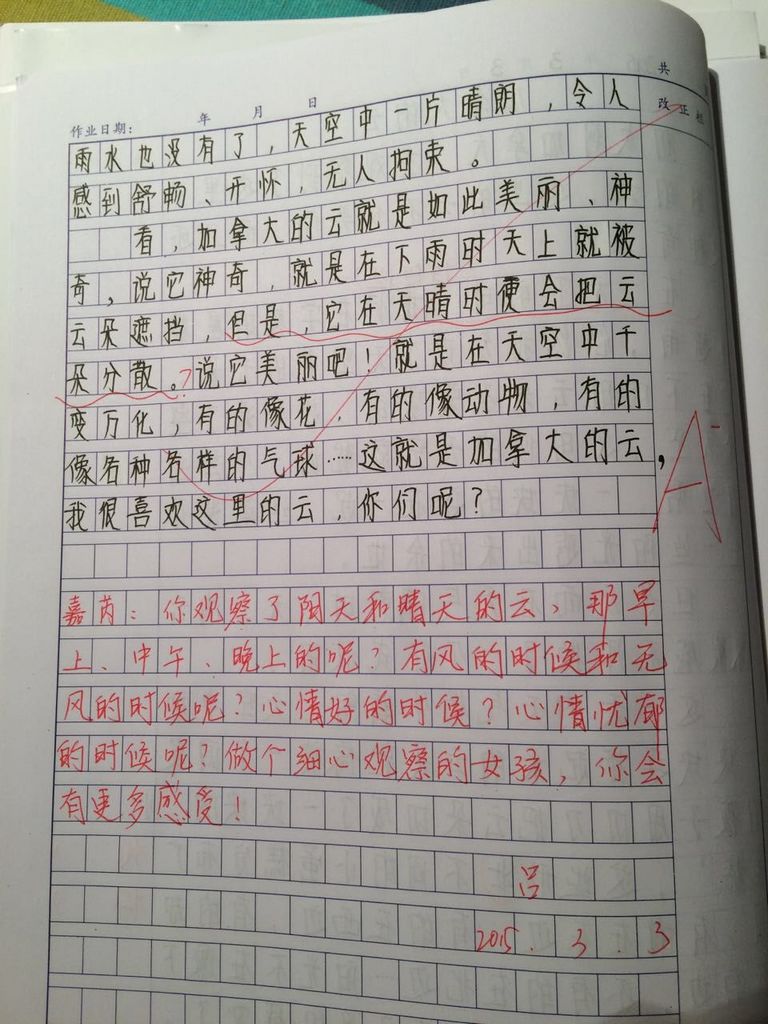 共
作业日期： 年 月 日
改正栏
雨水也没有了，天空中一片晴朗，令人
感到舒畅、开怀，无人拘束。
看，加拿大的云就是如此美丽、神
奇，说它神奇，就是在下雨时天上就被
云朵遮挡，但是，它在天晴时便会把云
朵分散。说它美丽吧！就是在天空中千
变万化，有的像花，有的像动物，有的
像各种各样的气球……这就是加拿大的云，
我很喜欢这里的云，你们呢？
?
A-
嘉芮：你观察了阴天和晴天的云、那早
上、中午、晚上的呢？有风的时候和无
风的时候呢？心情好的时候？心情忧郁
的时候呢？做个细心观察的女孩，你会
有更多感受！
吕
2015.3.3